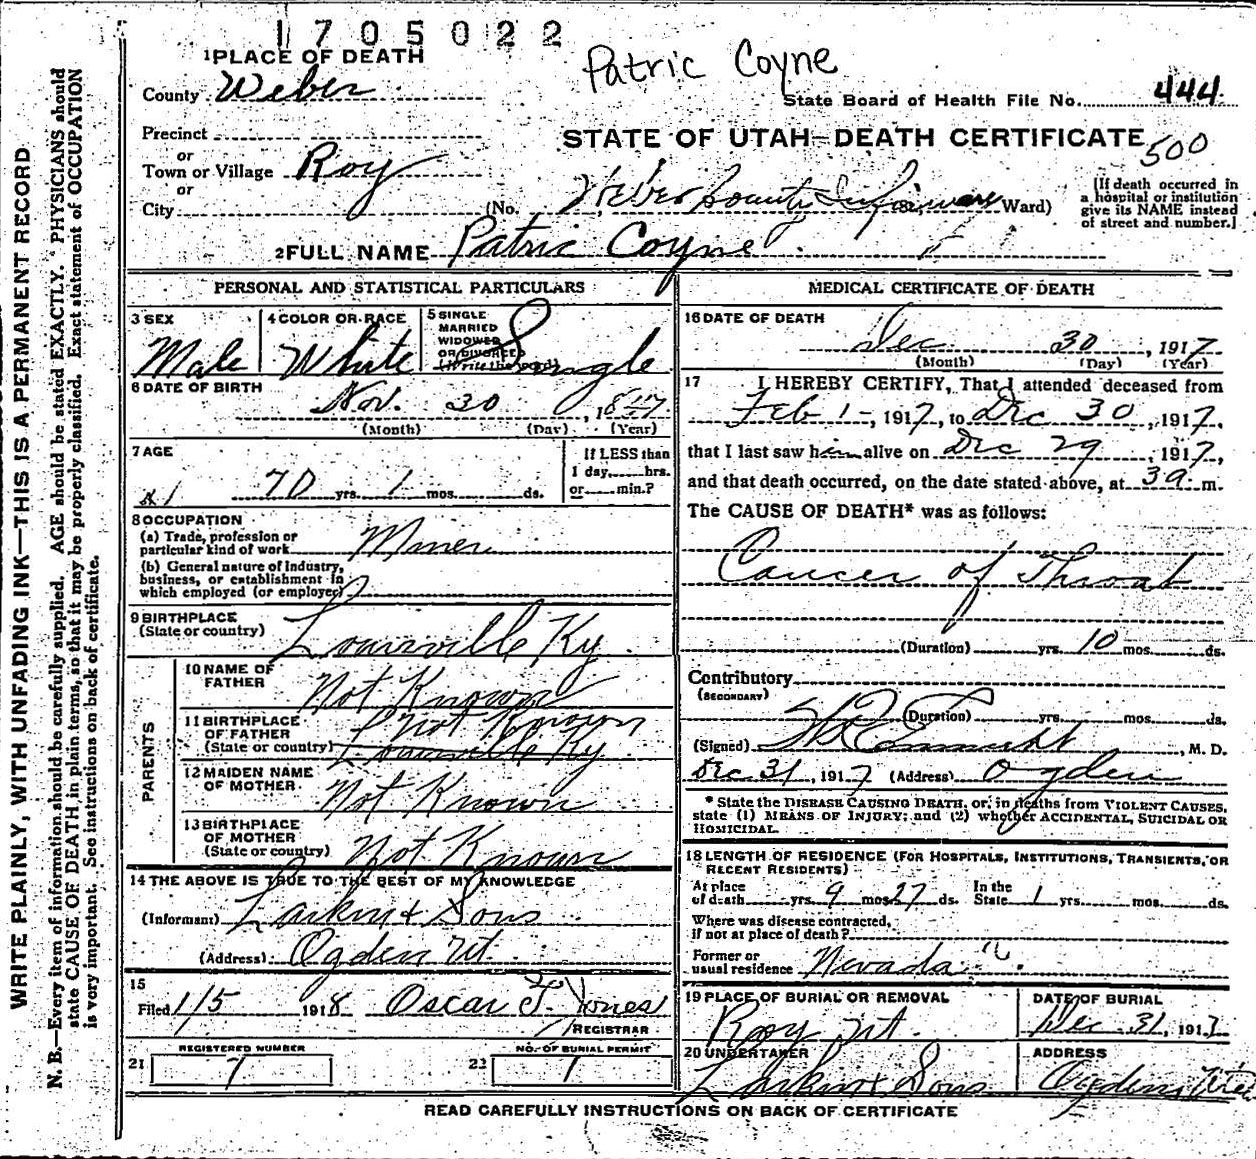 1705022
Patric Coyne
1 PLACE OF DEATH
County Weber
State Board of Health File No. 444
Precinct
STATE OF UTAH—DEATH CERTIFICATE
500
or
Town or Village Roy
or
City (No. Weber County Infirmary Ward)
[If death occurred in
a hospital or institution
give its NAME instead
of street and number.]
2 FULL NAME Patric Coyne
PERSONAL AND STATISTICAL PARTICULARS
3 SEX
Male
4 COLOR OR RACE
White
5 SINGLE
MARRIED
WIDOWED
OR DIVORCED
(Write the word)
Single
6 DATE OF BIRTH
Nov. 30, 1847
(Month) (Day) (Year)
7 AGE
70 yrs. 1 mos. ds.
If LESS than
1 day, hrs.
or min.?
8 OCCUPATION
(a) Trade, profession or
particular kind of work Miner
(b) General nature of industry,
business, or establishment in
which employed (or employer)
9 BIRTHPLACE
(State or country) Louisville Ky.
PARENTS
10 NAME OF
FATHER Not Known
11 BIRTHPLACE
OF FATHER Not Known
(State or country) Louisville Ky.
12 MAIDEN NAME
OF MOTHER Not Known
13 BIRTHPLACE
OF MOTHER
(State or country) Not Known
14 THE ABOVE IS TRUE TO THE BEST OF MY KNOWLEDGE
(Informant) Larkin & Sons
(Address) Ogden Ut.
15
Filed 1/5 1918 Oscar T. Jones
REGISTRAR
21 REGISTERED NUMBER
7
22 NO. OF BURIAL PERMIT
1
MEDICAL CERTIFICATE OF DEATH
16 DATE OF DEATH
Dec 30, 1917
(Month) (Day) (Year)
17 I HEREBY CERTIFY, That I attended deceased from
Feb 1-, 1917, to Dec 30, 1917,
that I last saw him alive on Dec 29, 1917,
and that death occurred, on the date stated above, at 3 a. m.
The CAUSE OF DEATH* was as follows:
Cancer of Throat
(Duration) yrs. 10 mos. ds.
Contributory
(SECONDARY)
(Duration) yrs. mos. ds.
(Signed) , M. D.
Dec 31, 1917 (Address) Ogden
* State the DISEASE CAUSING DEATH, or, in deaths from VIOLENT CAUSES,
state (1) MEANS OF INJURY; and (2) whether ACCIDENTAL, SUICIDAL OR
HOMICIDAL.
18 LENGTH OF RESIDENCE (FOR HOSPITALS, INSTITUTIONS, TRANSIENTS, OR
RECENT RESIDENTS)
At place
of death yrs. 9 mos 27 ds. In the
State 1 yrs. mos. ds.
Where was disease contracted,
if not at place of death?
Former or
usual residence Nevada
19 PLACE OF BURIAL OR REMOVAL
Roy Ut.
DATE OF BURIAL
Dec 31, 1917
20 UNDERTAKER
Larkin & Sons
ADDRESS
Ogden, Utah
READ CAREFULLY INSTRUCTIONS ON BACK OF CERTIFICATE
WRITE PLAINLY, WITH UNFADING INK—THIS IS A PERMANENT RECORD
N. B.—Every item of information should be carefully supplied. AGE should be stated EXACTLY. PHYSICIANS should
state CAUSE OF DEATH in plain terms, so that it may be properly classified. Exact statement of OCCUPATION
is very important. See instructions on back of certificate.